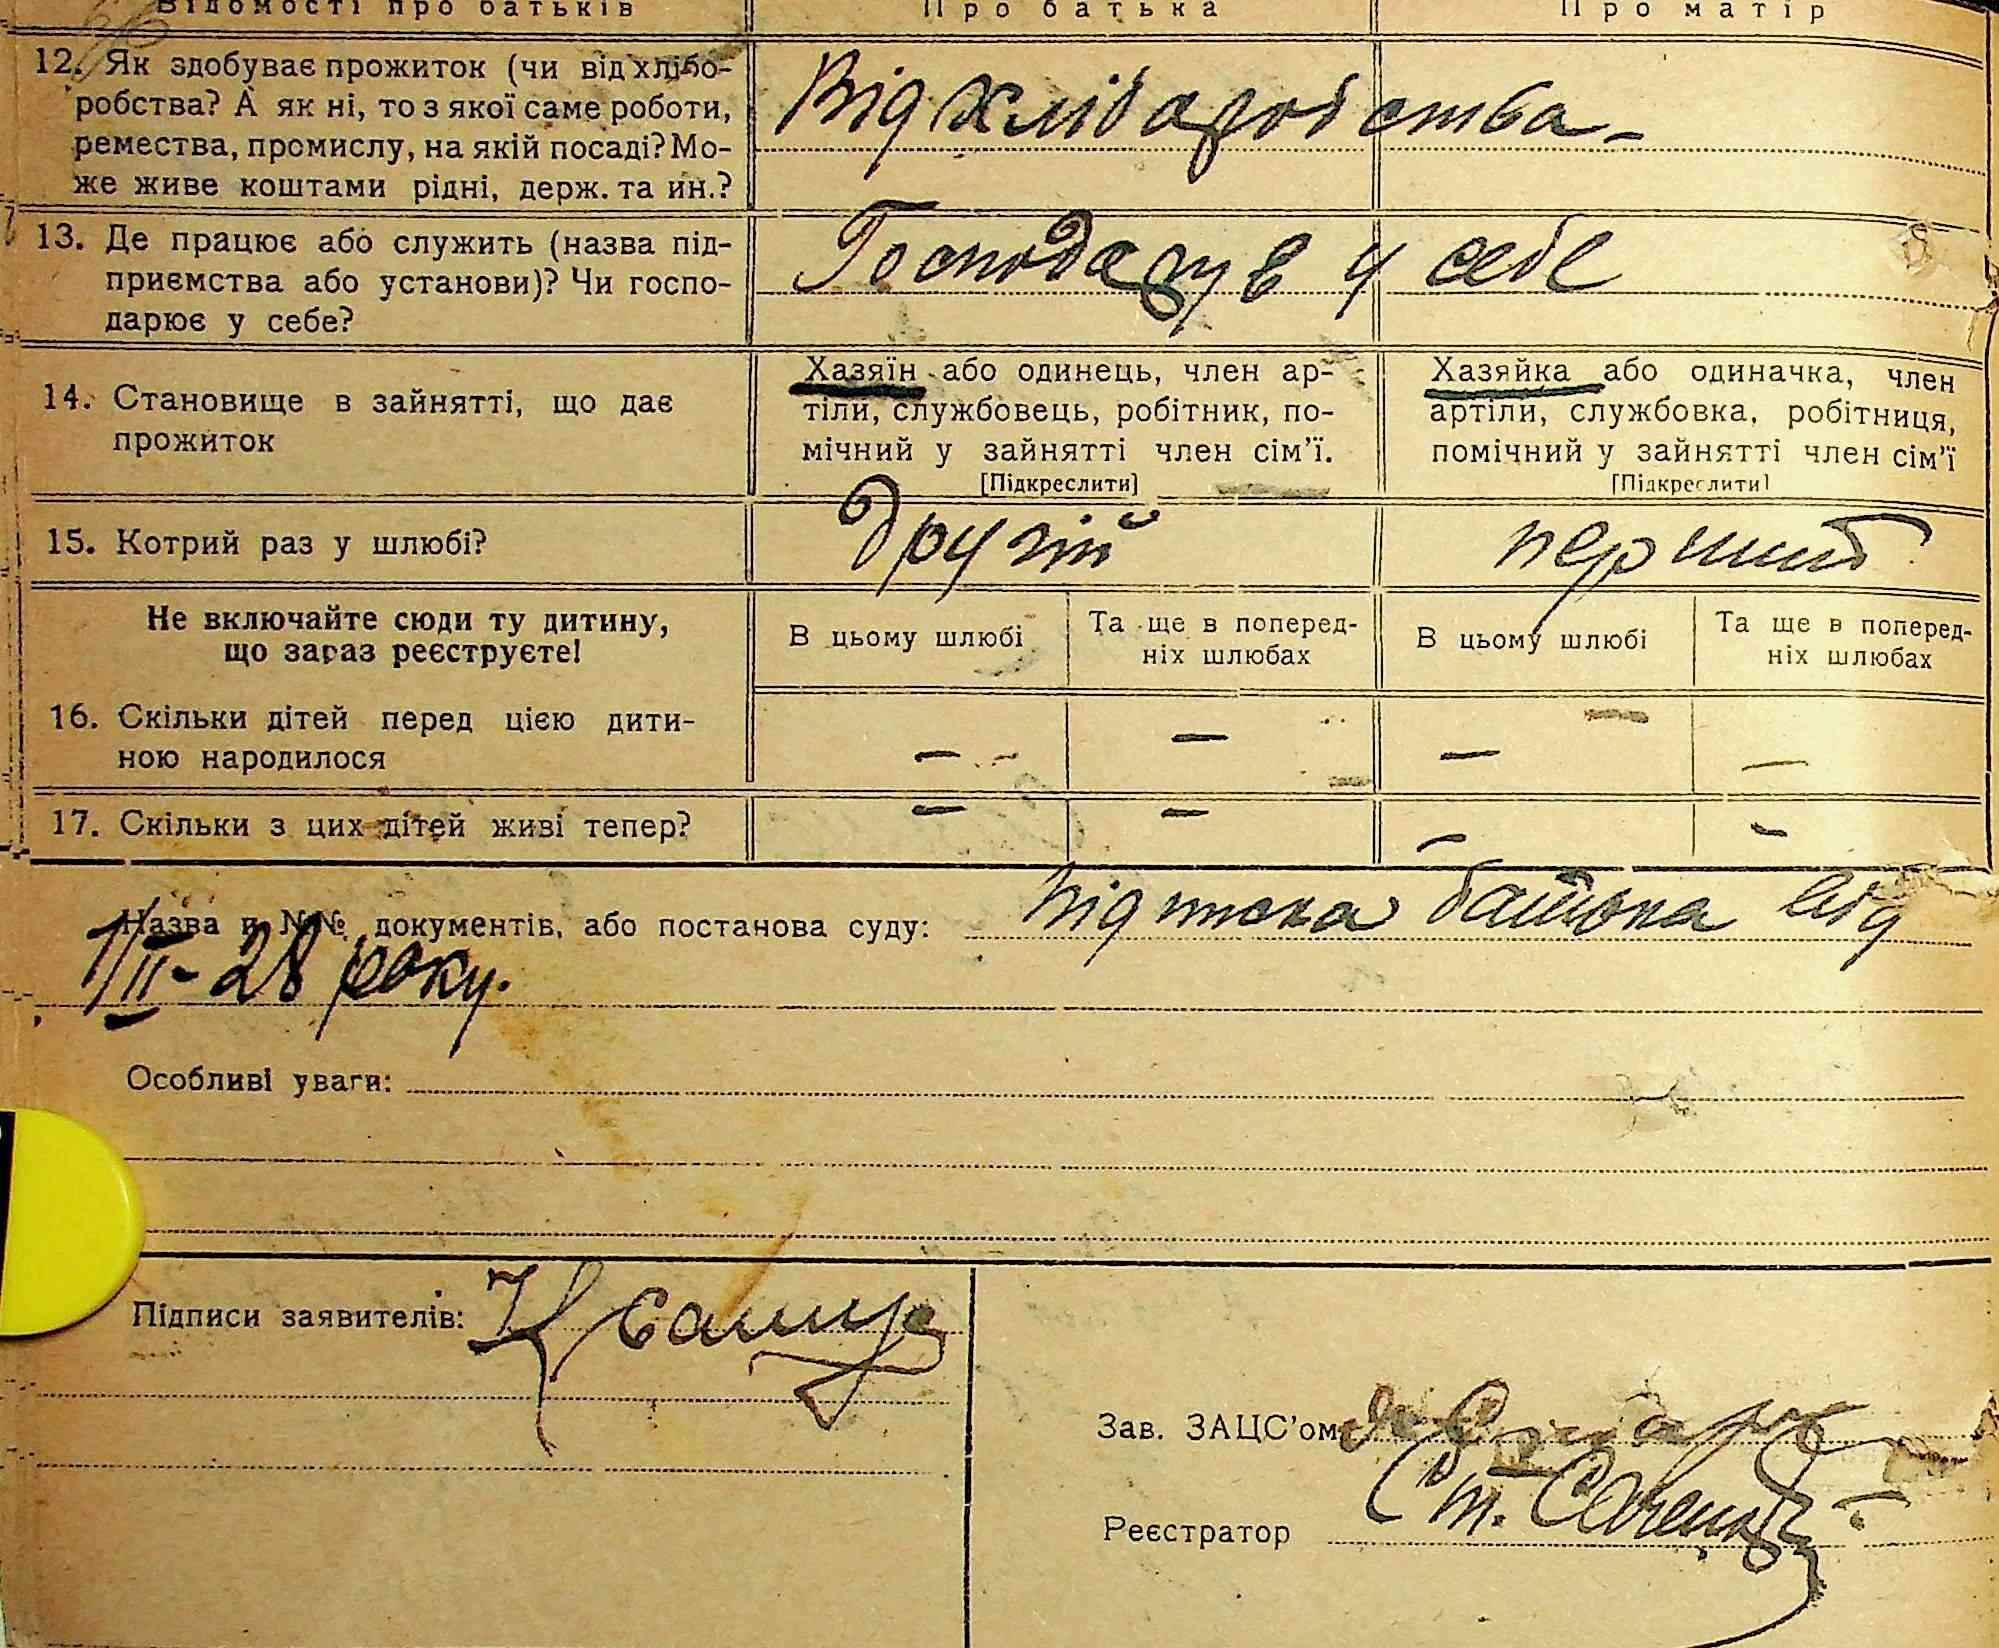 Відомості про батьків
Про батька
Про матір
12. Як здобуває прожиток (чи від хлібо-
робства? А як ні, то з якої саме роботи,
ремества, промислу, на якій посаді? Мо-
же живе коштами рідні, держ. та ин.?
Від хліба робства -
13. Де працює або служить (назва під-
приємства або установи)? Чи госпо-
дарює у себе?
Господарув у себе
14. Становище в зайнятті, що дає
прожиток
Хазяїн або одинець, член ар-
тіли, службовець, робітник, по-
мічний у зайнятті член сім’ї.
[Підкреслити]
Хазяйка або одиначка, член
артіли, службовка, робітниця,
помічний у зайнятті член сім’ї
[Підкреслити]
15. Котрий раз у шлюбі?
другій
перший
Не включайте сюди ту дитину,
що зараз реєструєте!
В цьому шлюбі
Та ще в поперед-
ніх шлюбах
В цьому шлюбі
Та ще в поперед-
ніх шлюбах
16. Скільки дітей перед цією дити-
ною народилося
— — — —
17. Скільки з цих дітей живі тепер?
— — — —
Назва и №№ документів, або постанова суду: Підписка батька від
1/II - 28 року.
Особливі уваги:
Підписи заявителів:
Зав. ЗАЦС’ом
Реєстратор